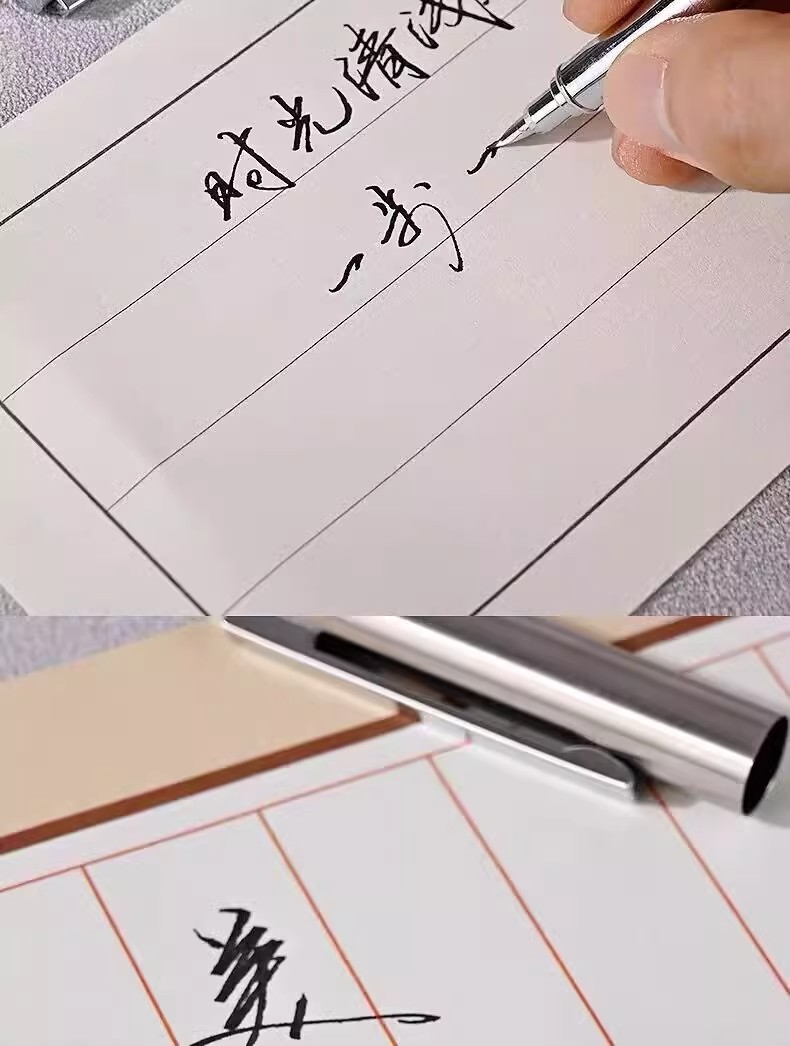 时光清浅
一步一